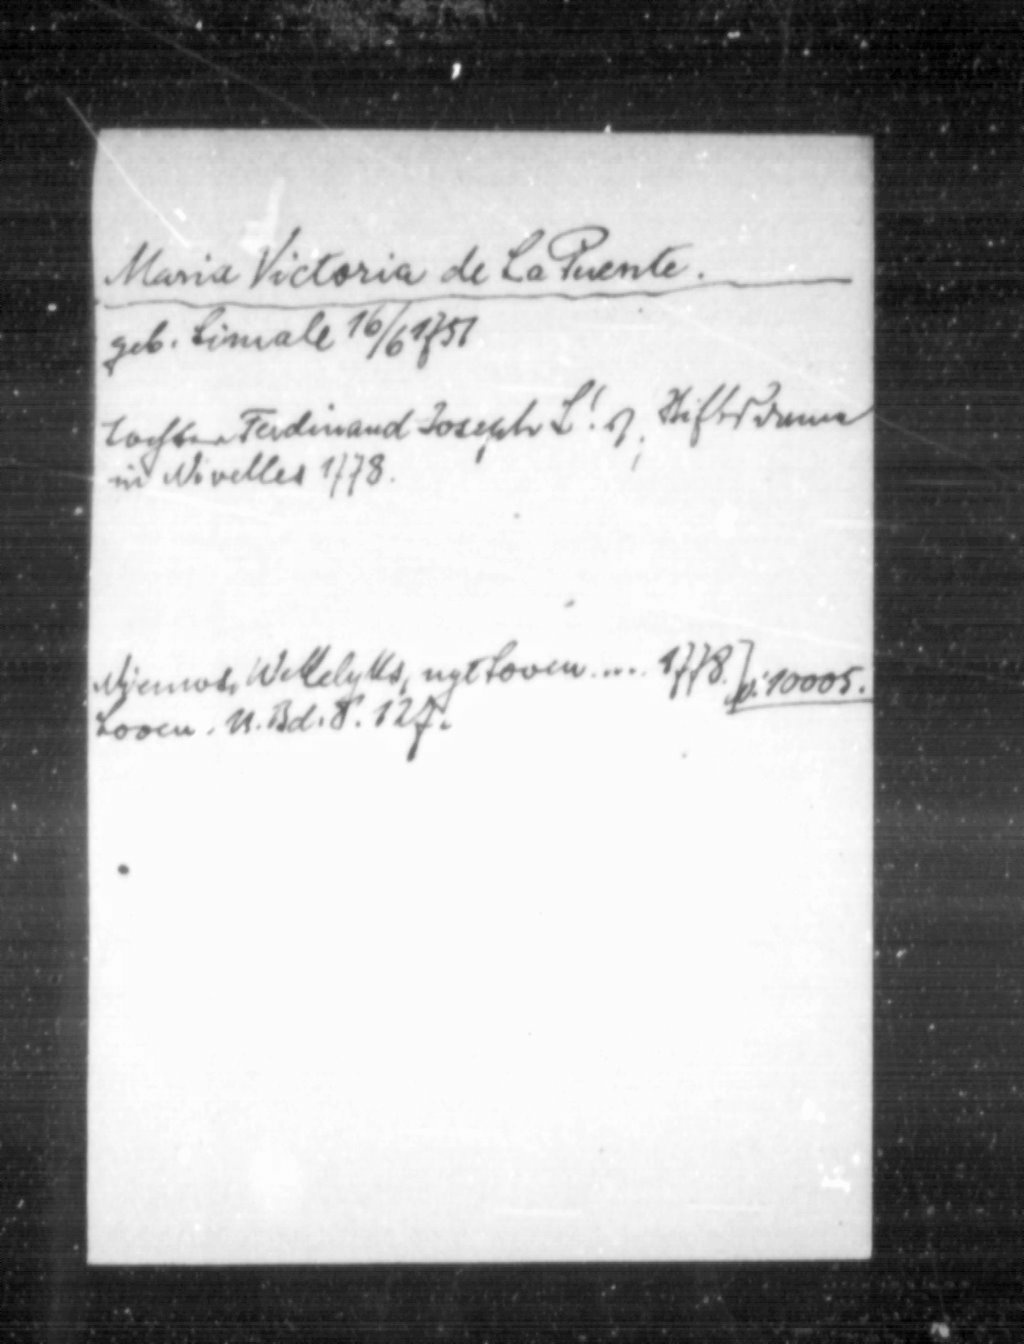 Maria Victoria de La Puente.
geb. Limale 16/6 1751
Tochter Ferdinand Joseph L! Stiftsdame
in Nivelles 1778.
Wekelyks, uyt Loven .... 1778.] 10005.
Loven. U. Bd. 8. 127.